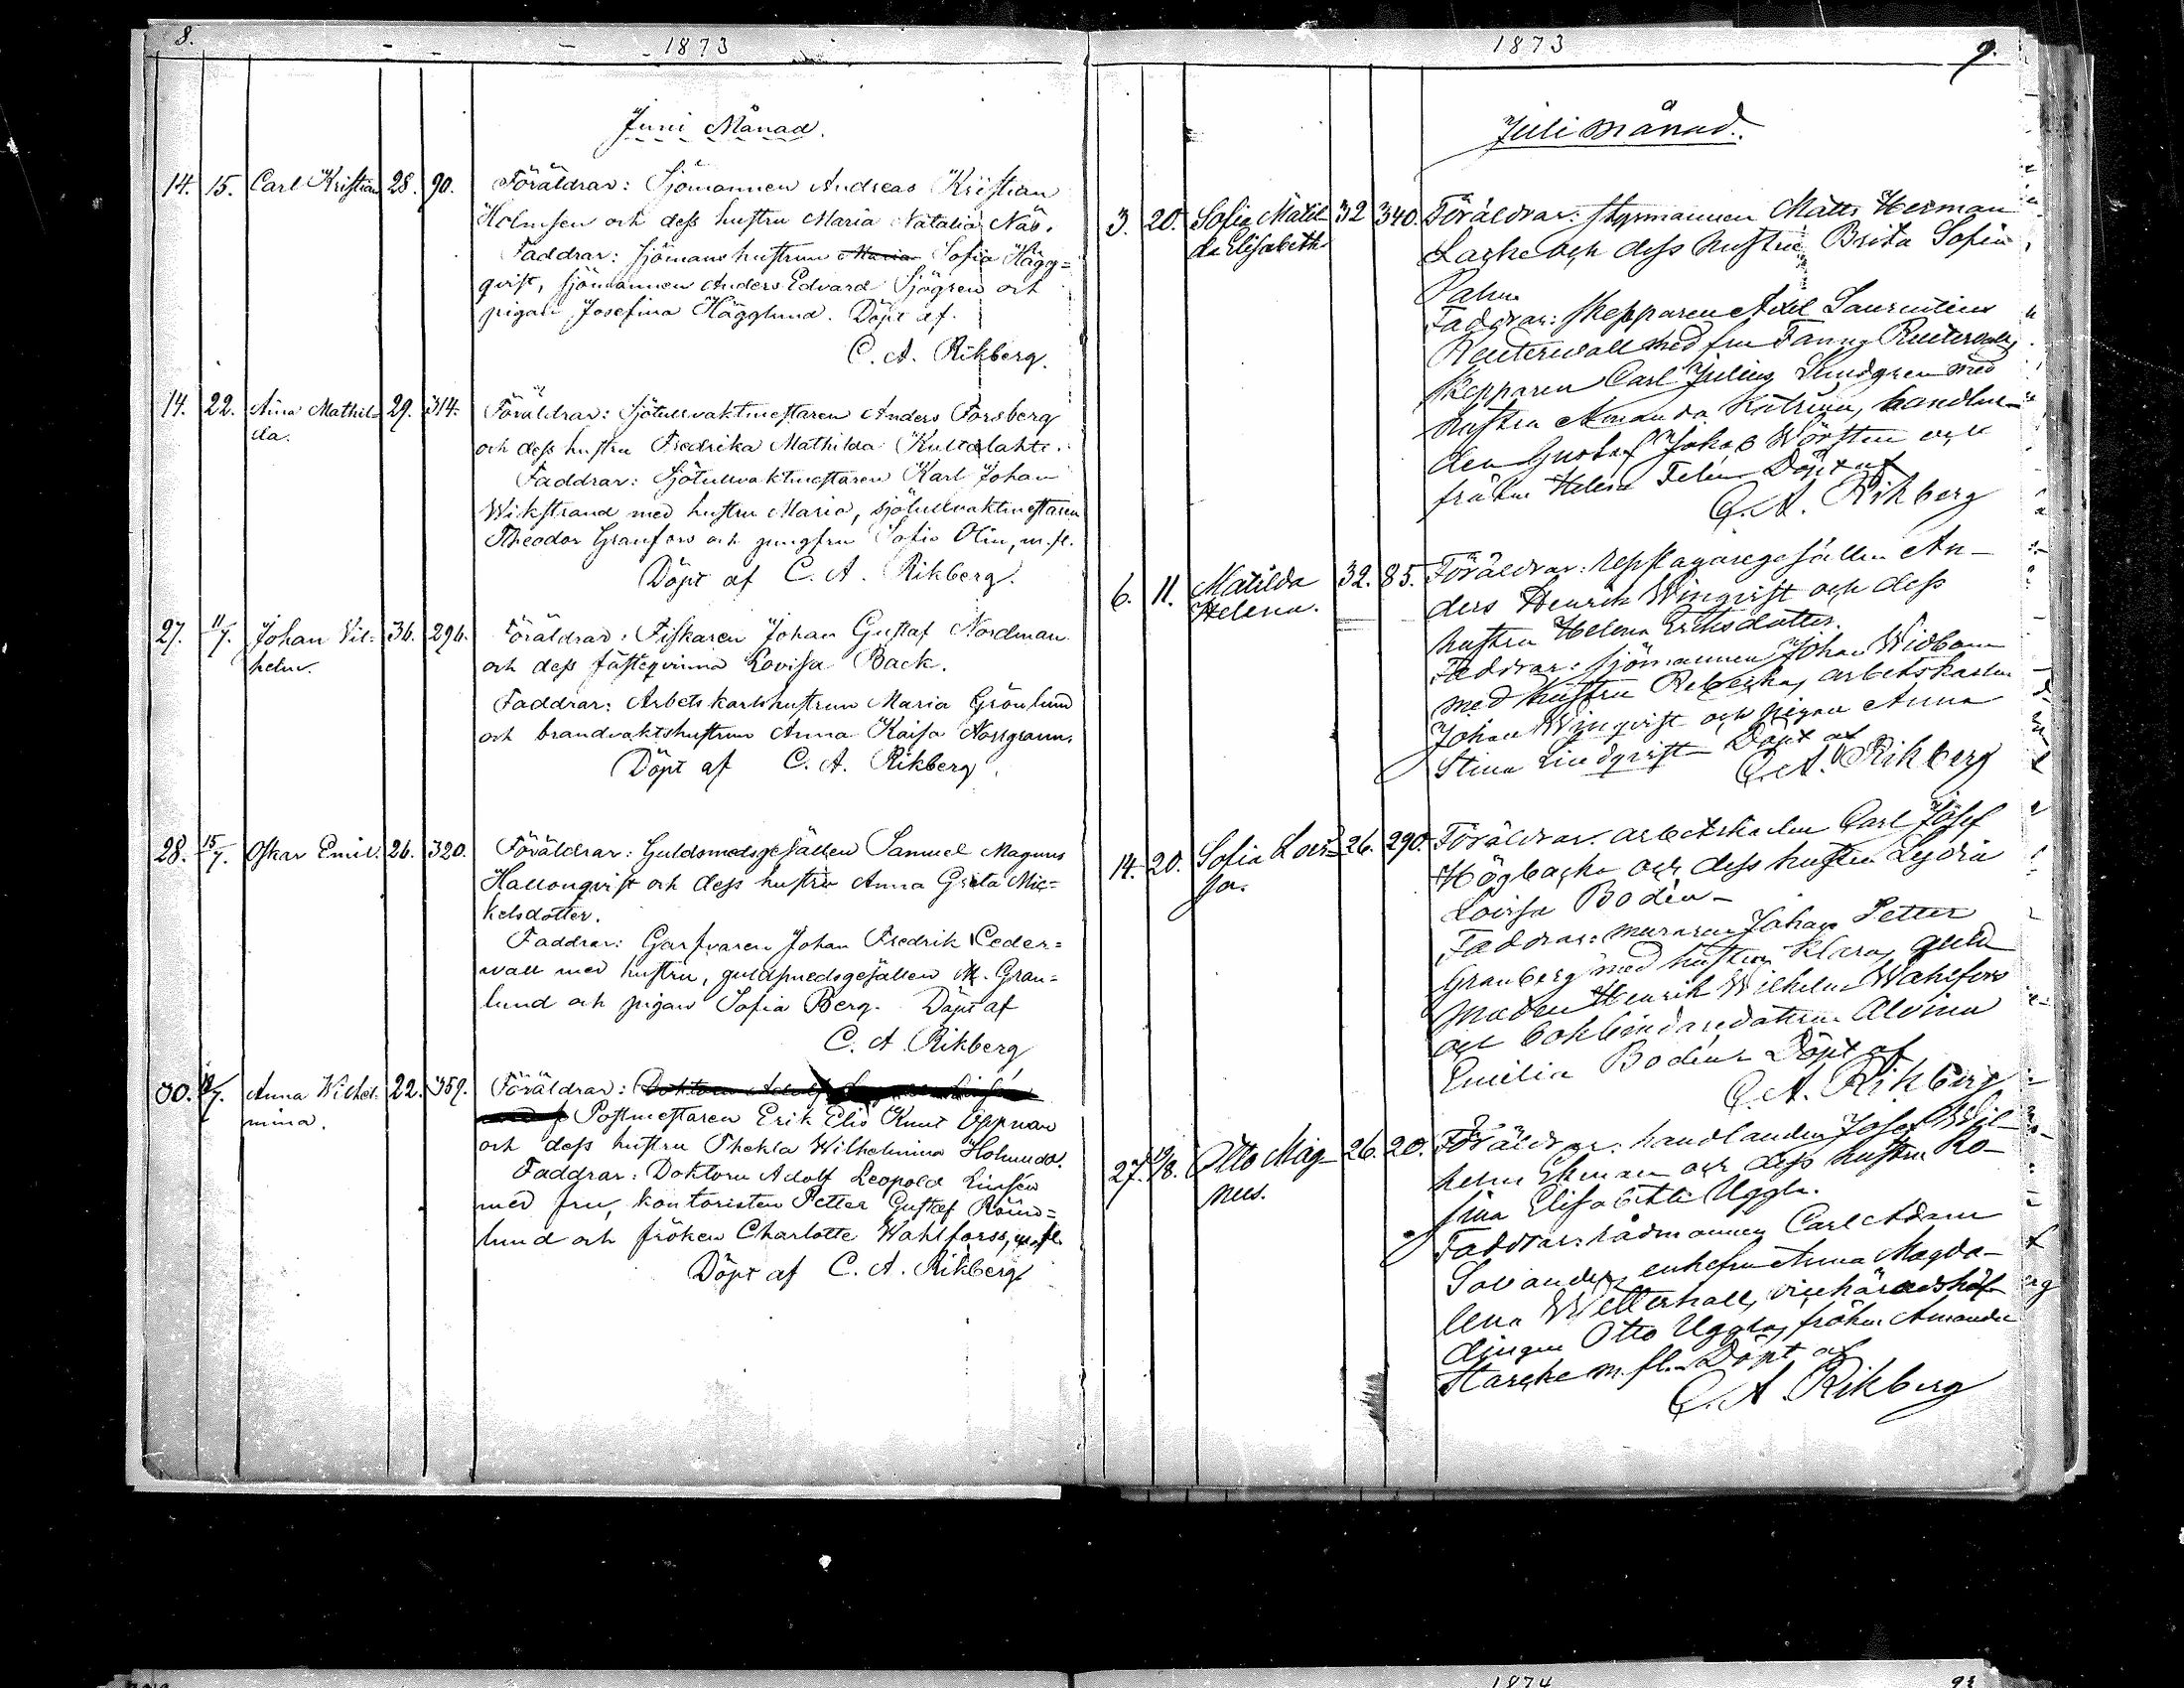 8.
1873
Juni Månad.
14. 15. Carl Kristian 28. 90. Föräldrar: Sjömannen Andreas Kristian
Holmsen och dess hustru Maria Natalia Näs.
Faddrar: sjömanshustrun Maria Sofia Hägg=
qvist, sjömannen Anders Edvard Sjögren och
pigan Josefina Hägglund. Döpt af
C. A. Rikberg.
14. 22. Aina Mathil= 29. 314. Föräldrar: Sjötullvaktmestaren Anders Forsberg
da. och dess hustru Fredrika Mathilda Kultalahti.
Faddrar: Sjötullvaktmestaren Karl Johan
Wikstrand med hustru Maria, sjötullvaktmestaren
Theodor Granfors och jungfru Sofia Olin, m. fl.
Döpt af C. A. Rikberg.
27. 11/7. Johan Vil= 36. 296. Föräldrar: Fiskaren Johan Gustaf Nordman
helm. och dess fästeqvinna Lovisa Back.
Faddrar: Arbetskarlshustrun Maria Grönlund
och brandvaktshustrun Anna Kaisa Norrgrann.
Döpt af C. A. Rikberg.
28. 15/7. Oskar Emil. 26. 320. Föräldrar: Guldsmedsgesällen Samuel Magnus
Hallonqvist och dess hustru Anna Greta Mic=
kelsdotter.
Faddrar: Garfvaren Johan Fredrik Ceder=
wall med hustru, guldsmedsgesällen M. Gran=
lund och pigan Sofia Berg. Döpt af
C. A. Rikberg
30. Anna Wilhel= 22. 359. Föräldrar: Doktorn Adolf
mina. Postmestaren Erik Elis Knut Öppman
och dess hustru Thekla Wilhelmina Holmudd.
Faddrar: Doktorn Adolf Leopold Linsén
med fru, kontoristen Petter Gustaf Rönn=
lund och fröken Charlotte Wahlforss, m. fl.
Döpt af C. A. Rikberg
1873
9.
Juli månad.
3. 20. Sofia Matil= 32 340. Föräldrar: styrmannen Matts Herman
da Elisabeth Backe och dess hustru Brita Sofia
Palm
Faddrar: skepparen Axel Laurentius
Reuterwall med fru Fanny Reuterwall,
skepparen Carl Julius Lundgren med
hustru Amanda Katrina, handlan-
den Gustaf Jakob Wörsten och
fröken Helena Felin Döpt af
C. A. Rikberg
6. 11. Matilda 32. 85. Föräldrar: repslagaregesällen An-
Helena. ders Henrik Winqvist och dess
hustru Helena Eriksdotter.
Faddrar: sjömannen Johan Widbom
med hustru Rebecka, arbetskarlen
Johan Winqvist och pigan Anna
Stina Lindqvist Döpt af
C. A. Rikberg
14. 20. Sofia Lovi= 26. 290. Föräldrar: arbetskarlen Carl Josef
sa. Högbacka och dess hustru Lydia
Lovisa Bodén-
Faddrar: muraren Johan Petter
Granberg med hustru Klara, guld
smeden Henrik Wilhelm Wahlfors
och bokbindaredottren Alvina
Emilia Bodén. Döpt af
C. A. Rikberg
27. 19/8. Otto Mag- 26. 20. Föräldrar: handlanden Josef Wil-
nus. helm Ekman och dess hustru Ro-
sina Elisabeth Uggla.
Faddrar: rådmannen Carl Adam
Solander, enkefru Anna Magda-
lena Wetterhall, vicehäradshöf-
dingen Otto Uggla, fröken Amanda
Starcke m. fl. Döpt af
C. A Rikberg
1874